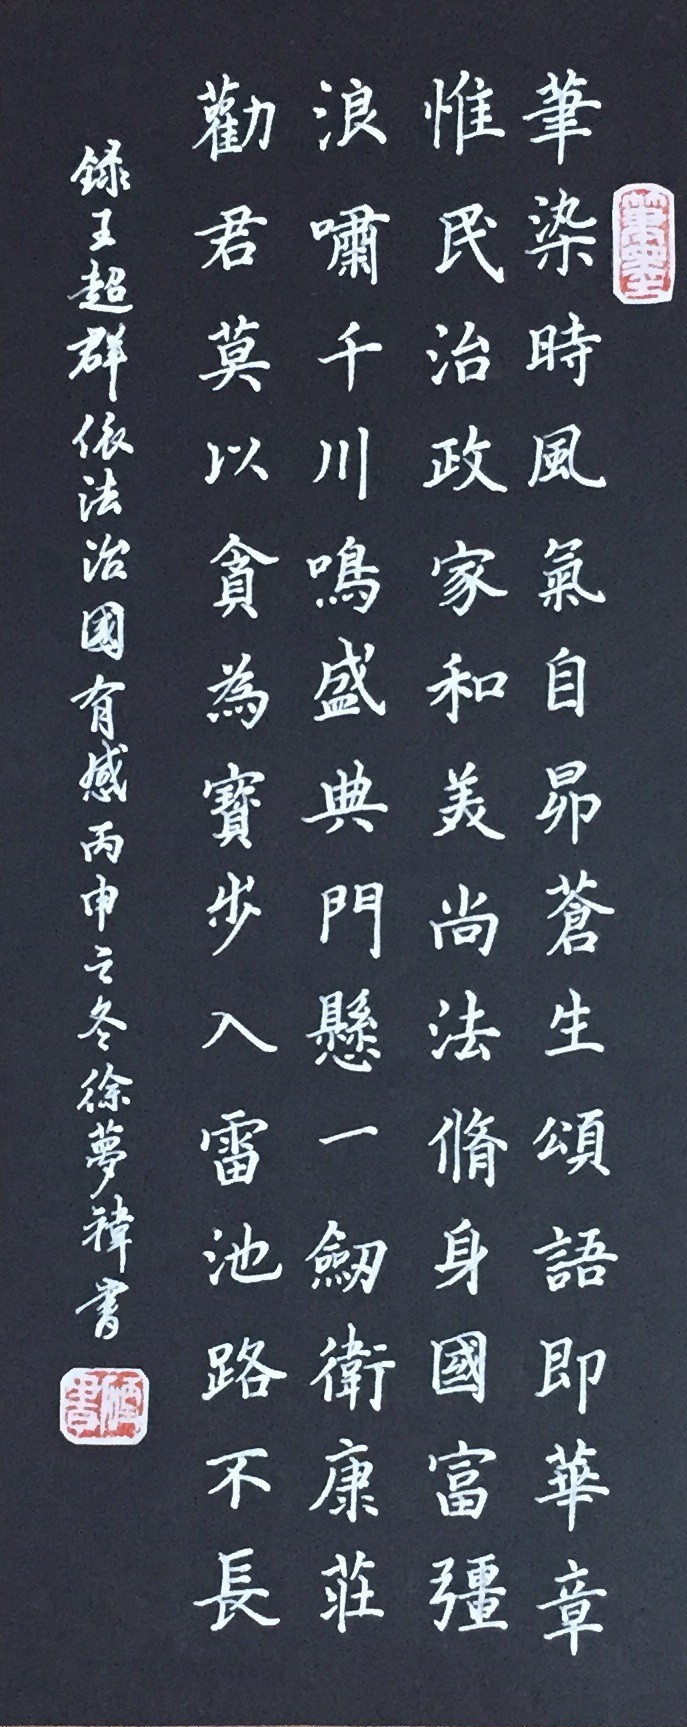 筆染時風氣自昂蒼生頌語即華章
惟民治政家和美尚法脩身國富彊
浪嘯千川鳴盛典門懸一劒衛康莊
勸君莫以貪為寶步入雷池路不長
録王超群依法治國有感丙申之冬徐夢禕書